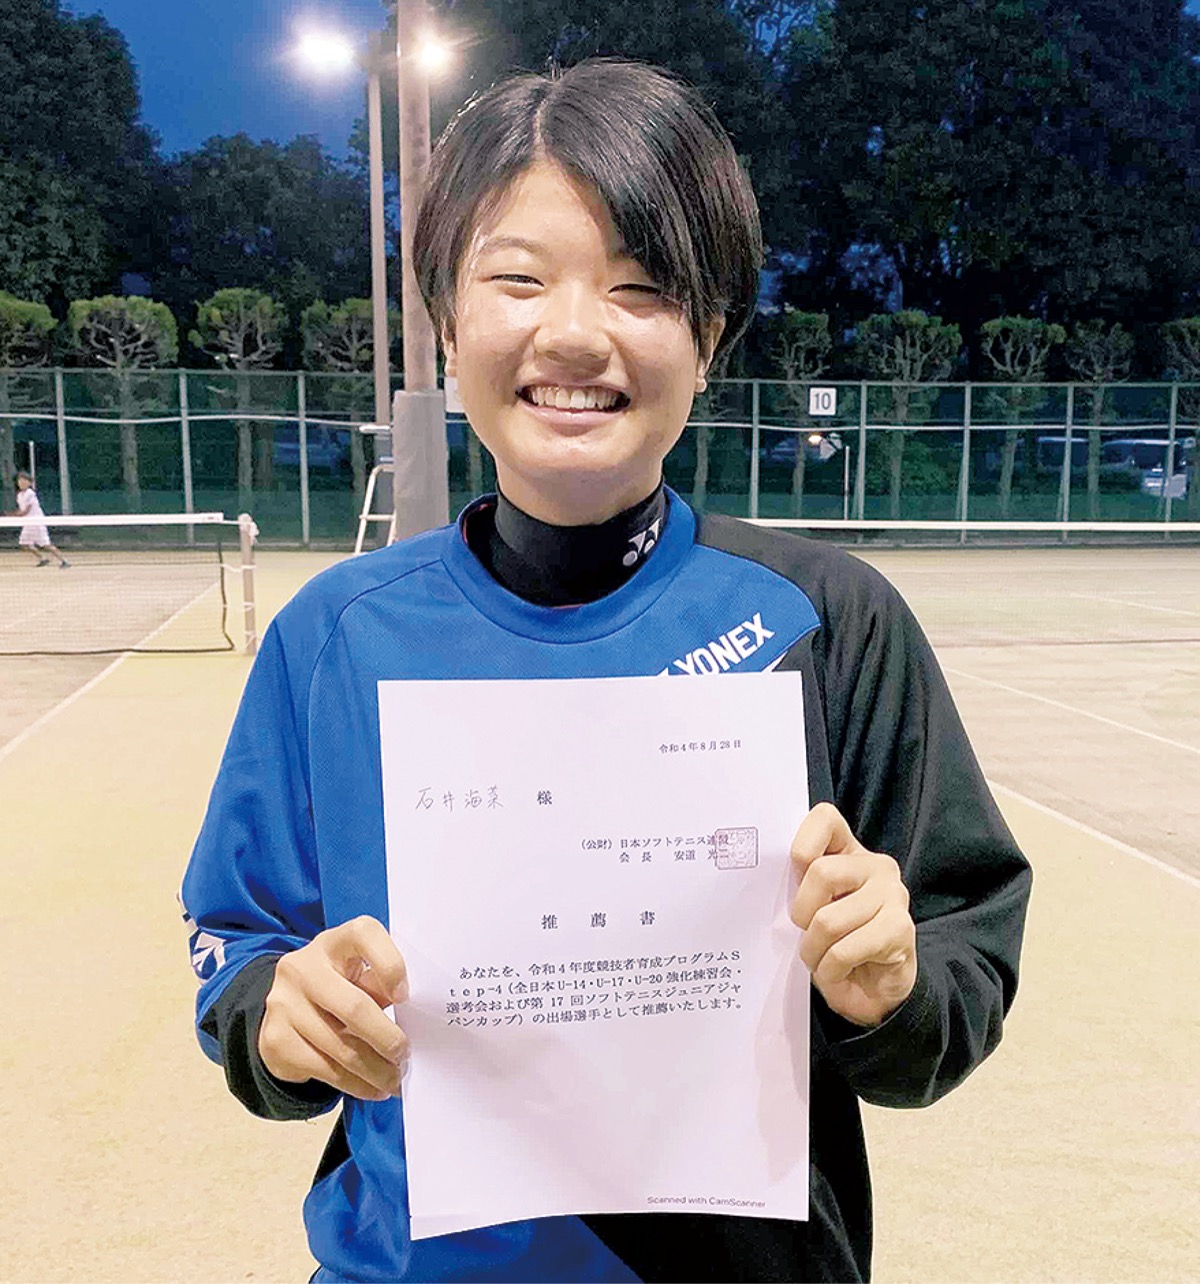 10
YONEX
令和4年8月28日
石井海菜 様
（公財）日本ソフトテニス連盟
会 長 安道 光二
推 薦 書
あなたを、令和4年度競技者育成プログラムS
tep-4（全日本U-14・U-17・U-20強化練習会・
選考会および第 17 回ソフトテニスジュニアジャ
パンカップ）の出場選手として推薦いたします。
Scanned with CamScanner